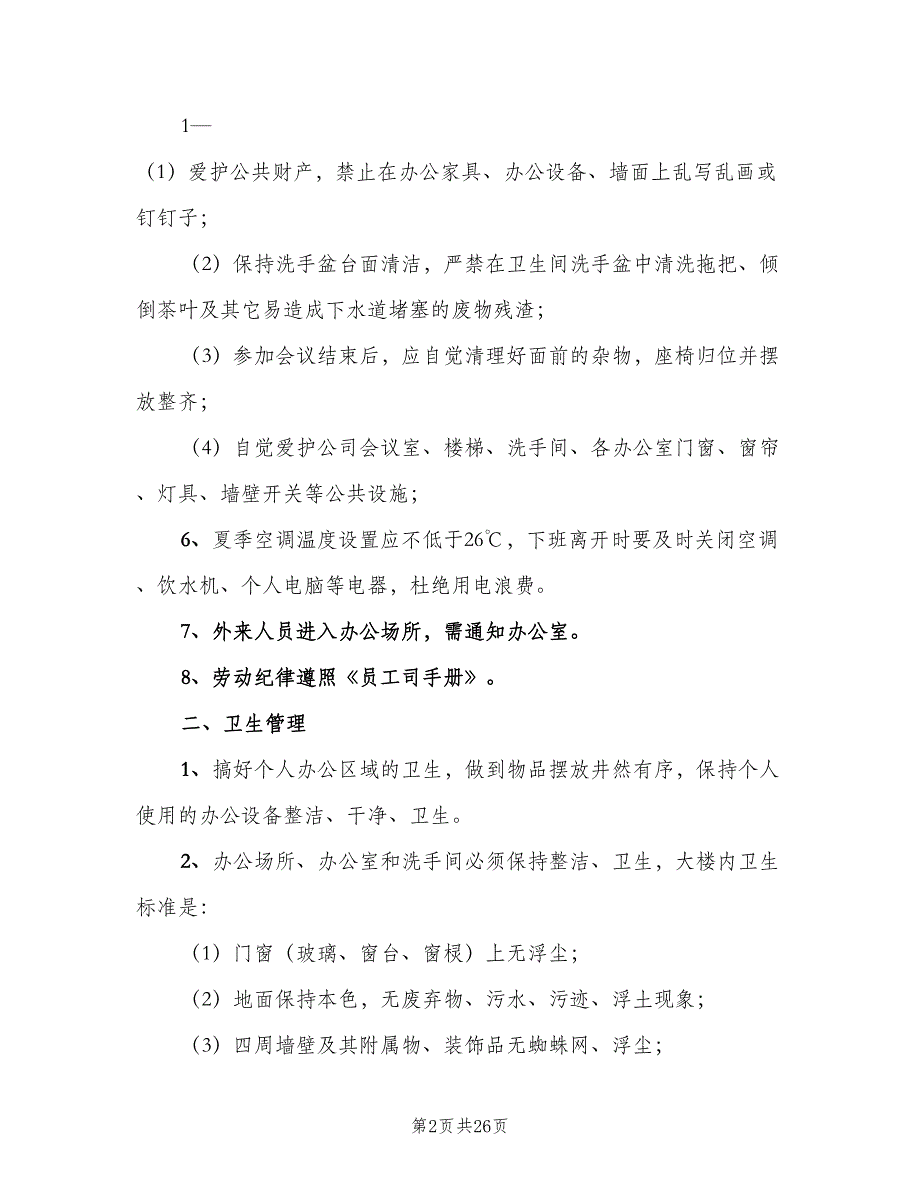 1—
（1）爱护公共财产，禁止在办公家具、办公设备、墙面上乱写乱画或
钉钉子；
（2）保持洗手盆台面清洁，严禁在卫生间洗手盆中清洗拖把、倾
倒茶叶及其它易造成下水道堵塞的废物残渣；
（3）参加会议结束后，应自觉清理好面前的杂物，座椅归位并摆
放整齐；
（4）自觉爱护公司会议室、楼梯、洗手间、各办公室门窗、窗帘
、灯具、墙壁开关等公共设施；
6、夏季空调温度设置应不低于26℃，下班离开时要及时关闭空调
、饮水机、个人电脑等电器，杜绝用电浪费。
7、外来人员进入办公场所，需通知办公室。
8、劳动纪律遵照《员工司手册》。
二、卫生管理
1、搞好个人办公区域的卫生，做到物品摆放井然有序，保持个人
使用的办公设备整洁、干净、卫生。
2、办公场所、办公室和洗手间必须保持整洁、卫生，大楼内卫生
标准是：
（1）门窗（玻璃、窗台、窗棂）上无浮尘；
（2）地面保持本色，无废弃物、污水、污迹、浮土现象；
（3）四周墙壁及其附属物、装饰品无蜘蛛网、浮尘；
第2页共26页